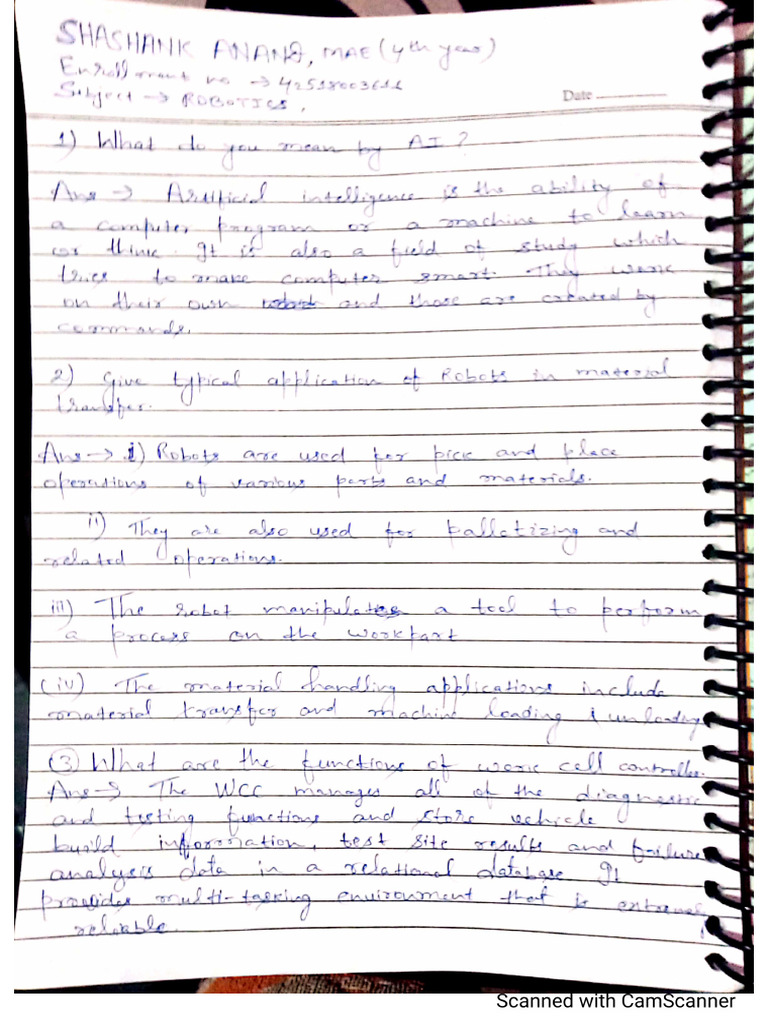 SHASHANK ANAND, MAE (4th year)
Enrollment no → 42518003611
Subject → ROBOTICS,
Date
1) What do you mean by AI ?
Ans → Artificial intelligence is the ability of
a computer program or a machine to learn
or think. It is also a field of study which
tries to make computer smart. They work
on their own and those are created by
commands.
2) Give typical application of Robots in material
transfer.
Ans → i) Robots are used for pick and place
operations of various parts and materials.
ii) They are also used for palletizing and
related operations.
iii) The robot manipulates a tool to perform
a process on the workpart
(iv) The material handling applications include
material transfer and machine loading & unloading
③ What are the functions of work cell controller.
Ans → The WCC manages all of the diagnostic
and testing functions and store vehicle
build information, test site results and failure
analysis data in a relational database. It
provides multi-tasking environment that is
reliable.
Scanned with CamScanner